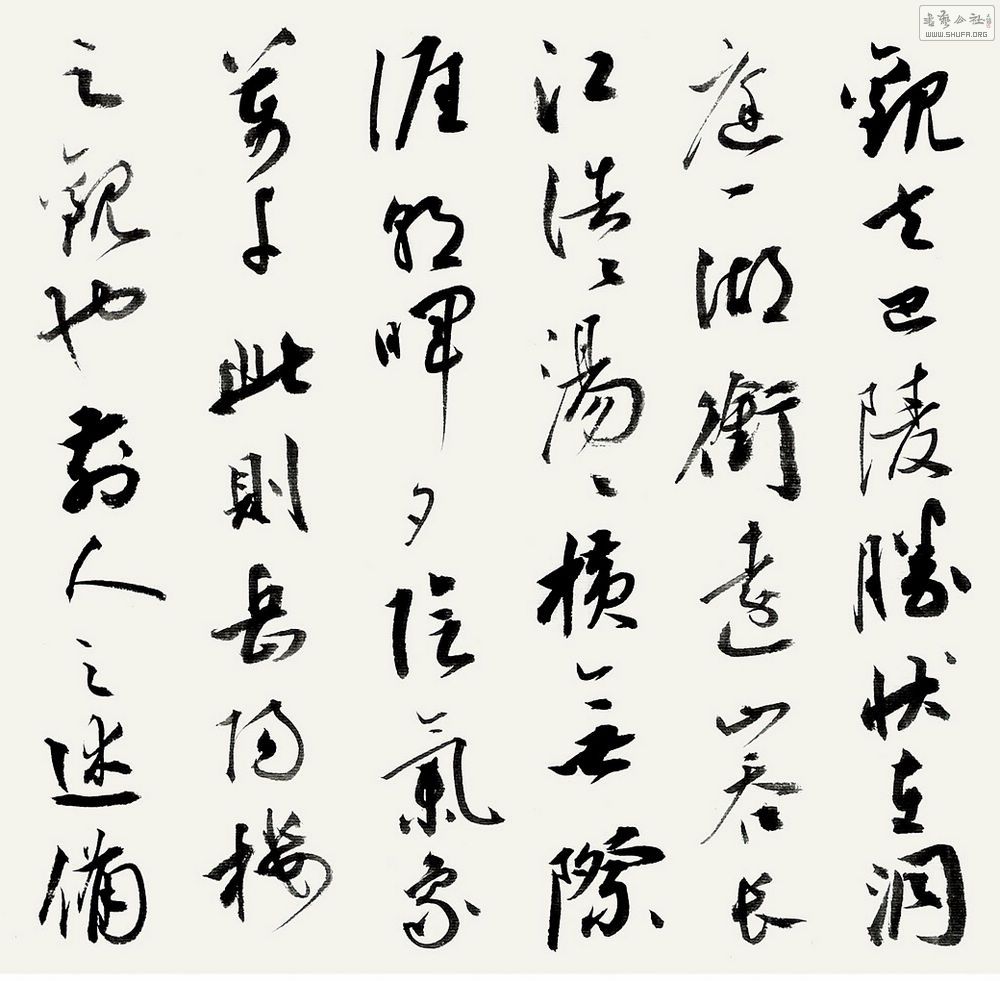 觀夫巴陵勝狀在洞
庭一湖銜遠山吞長
江浩〻湯〻橫無際
涯朝暉夕陰氣象
萬千此則岳陽樓
之觀也前人之述備
书艺公社
WWW.SHUFA.ORG